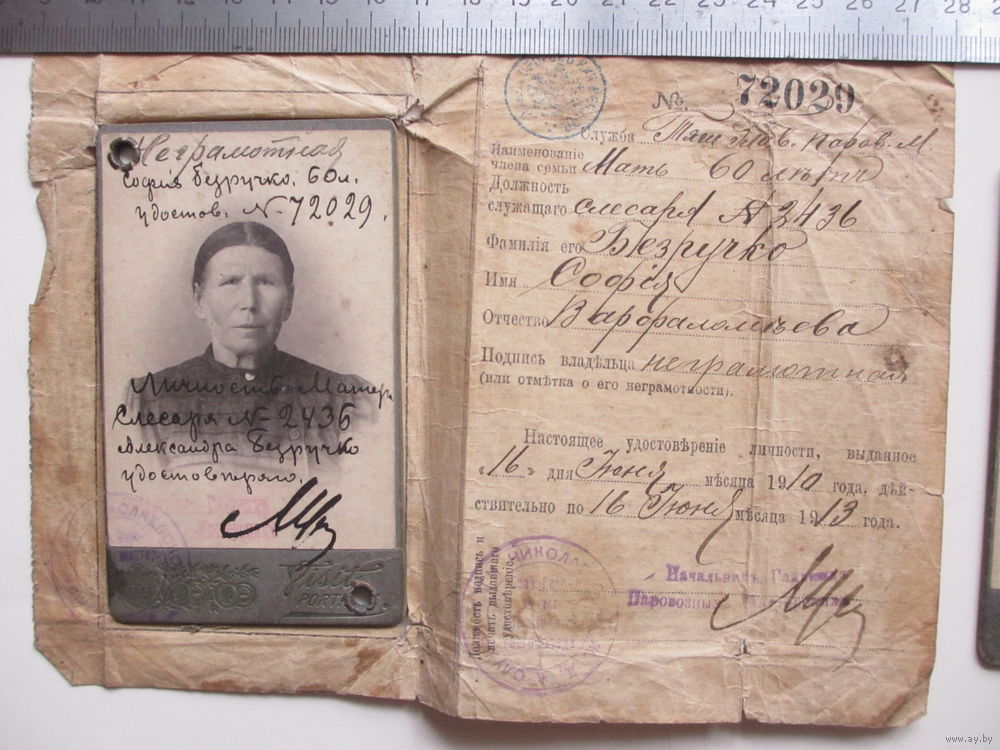 12 13 14 15 16 17 18 19 20 21 22 23 24 25 26 27 28
Неграмотная
Софія Безручко. 60 л.
удостов. № 72029.
Личность Матери
Слесаря № 2436
Александра Безручко
удостоверяю.
Visit
PORTRAIT
№ 72029
Служба Тяги Глав. паров. М
Наименованіе члена семьи Мать 60 летъ
Должность служащаго слесаря № 2436
Фамилія его Безручко
Имя Софія
Отчество Варфаломѣева
Подпись владѣльца неграмотная
(или отмѣтка о его неграмотности).
Настоящее удостовѣреніе личности, выданное
„16" дня Іюня мѣсяца 1910 года, дѣй-
ствительно по 16 Іюня мѣсяца 1913 года.
Должность подпись и
печать выдавшаго
удостовѣреніе.
НИКОЛА
Начальникъ Главныхъ
Паровозныхъ
www.ay.by